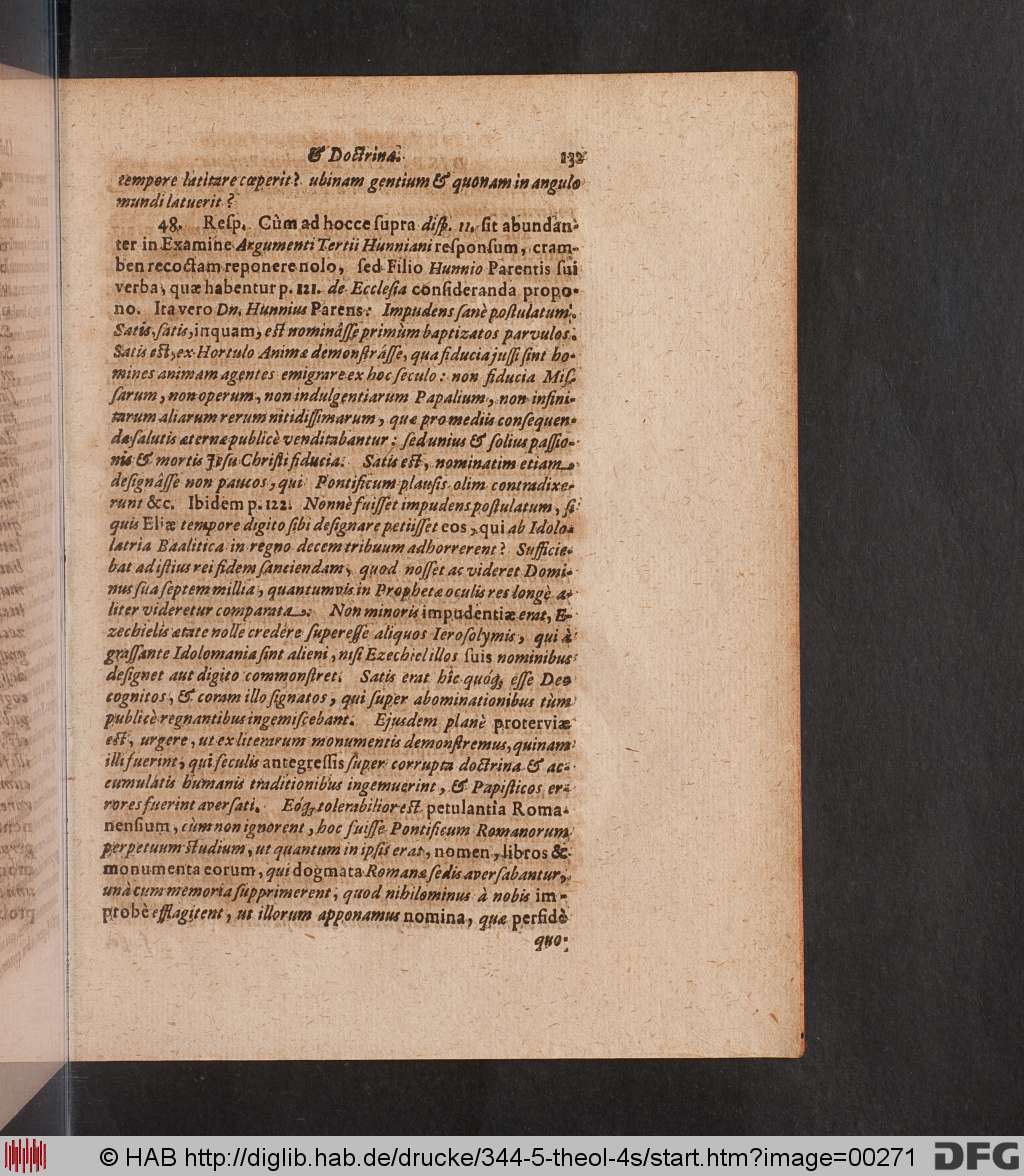 & Doctrina. 132
tempore latitare cœperit? ubinam gentium & quonam in angulo
mundi latuerit?
48. Reſp. Cùm ad hocce ſupra diſp. 11. ſit abundan-
ter in Examine Argumenti Tertii Hunniani reſponſum, cram-
ben recoctam reponere nolo, ſed Filio Hunnio Parentis ſui
verba, quæ habentur p. 121. de Eccleſia conſideranda propo-
no. Ita vero Dn. Hunnius Parens: Impudens ſanè poſtulatum.
Satis, ſatis, inquam, eſt nominâſſe primùm baptizatos parvulos.
Satis eſt, ex Hortulo Animæ demonſtrâſſe, qua fiducia juſſi ſint ho-
mines animam agentes emigrare ex hoc ſeculo: non fiducia Miſ-
ſarum, non operum, non indulgentiarum Papalium, non infini-
tarum aliarum rerum nitidiſſimarum, quæ pro mediis conſequen-
dæ ſalutis æternæ publicè venditabantur: ſed unius & ſolius paſſio-
nis & mortis Jeſu Chriſti fiducia. Satis eſt, nominatim etiam
deſignâſſe non paucos, qui Pontificum plauſis olim contradixe-
runt &c. Ibidem p. 122. Nonnè fuiſſet impudens poſtulatum, ſi
quis Eliæ tempore digito ſibi deſignare petiiſſet eos, qui ab Idolo-
latria Baalitica in regno decem tribuum adhorrerent? Sufficie-
bat ad iſtius rei fidem ſanciendam, quod noſſet ac videret Domi-
nus ſua ſeptem millia, quantumvis in Prophetæ oculis res longè a-
liter videretur comparata. Non minoris impudentiæ erat, E-
zechielis ætate nolle credere ſupereſſe aliquos Ieroſolymis, qui à
graſſante Idolomania ſint alieni, niſi Ezechiel illos ſuis nominibus
deſignet aut digito commonſtret. Satis erat hîc quóq; eſſe Deo
cognitos, & coram illo ſignatos, qui ſuper abominationibus tùm
publicè regnantibus ingemiſcebant. Ejusdem planè proterviæ
eſt, urgere, ut ex literarum monumentis demonſtremus, quinam
illi fuerint, qui ſeculis antegreſſis ſuper corrupta doctrina & ac-
cumulatis humanis traditionibus ingemuerint, & Papiſticos er-
rores fuerint averſati. Eóq; tolerabilior eſt petulantia Roma-
nenſium, cùm non ignorent, hoc fuiſſe Pontificum Romanorum
perpetuum ſtudium, ut quantum in ipſis erat, nomen, libros &
monumenta eorum, qui dogmata Romanæ ſedis averſabantur,
unà cum memoria ſupprimerent, quod nihilominus à nobis im-
probè efflagitent, ut illorum apponamus nomina, quæ perfidè
quo-
© HAB http://diglib.hab.de/drucke/344-5-theol-4s/start.htm?image=00271 DFG